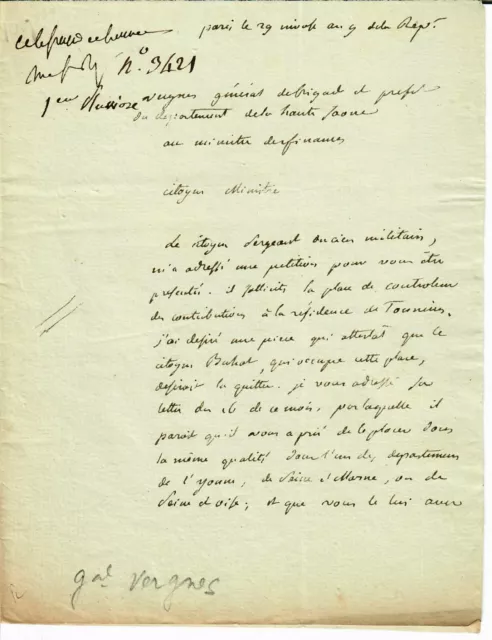 paris le 29 nivose an 9 de la Rep.
N.° 3421
Vergnes général de brigade et prefet
du département de la haute saone
au ministre des finances
citoyen Ministre
Le citoyen Sergeant ancien militaire,
m'a adressé une petition pour vous être
presentée. il sollicite la place de controleur
des contributions à la résidence de
j'ai desiré une piece qui attestat que le
citoyen Buhot, qui occupe cette place,
desirait la quitter. je vous adresse sa
lettre du 16 de ce mois, par laquelle il
parait qu'il vous a prié de le placer dans
la même qualité dans l'un des departemens
de l'yonne, de Seine et Marne, ou de
Seine et oise; et que vous le lui avez
gal Vergnes